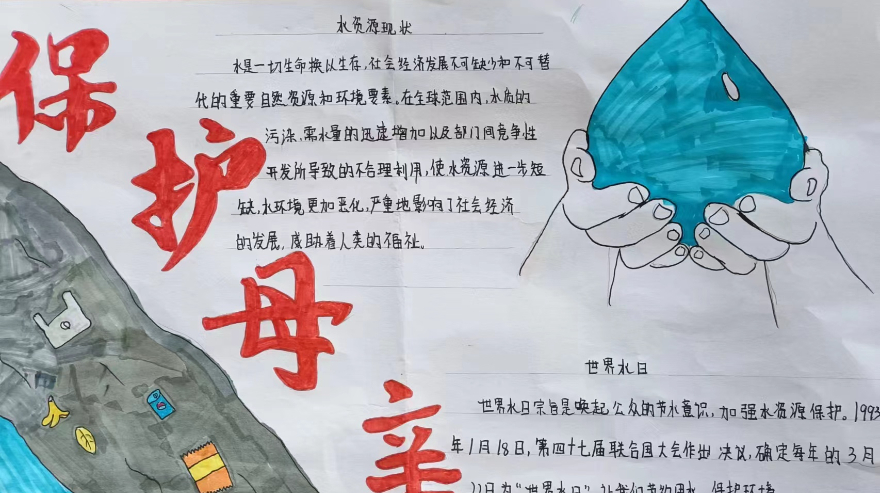 保
护
母
亲
水资源现状
水是一切生命换以生存,社会经济发展不可缺少和不可替
代的重要自然资源和环境要素。在全球范围内,水质的
污染,需水量的迅速增加以及部门间竞争性
开发所导致的不合理利用,使水资源进一步短
缺,水环境更加恶化,严重地影响了社会经济
的发展,威胁着人类的福祉。
世界水日
世界水日宗旨是唤起公众的节水意识,加强水资源保护。1993
年1月18日,第四十七届联合国大会作出决议,确定每年的3月
日为"世界水日"